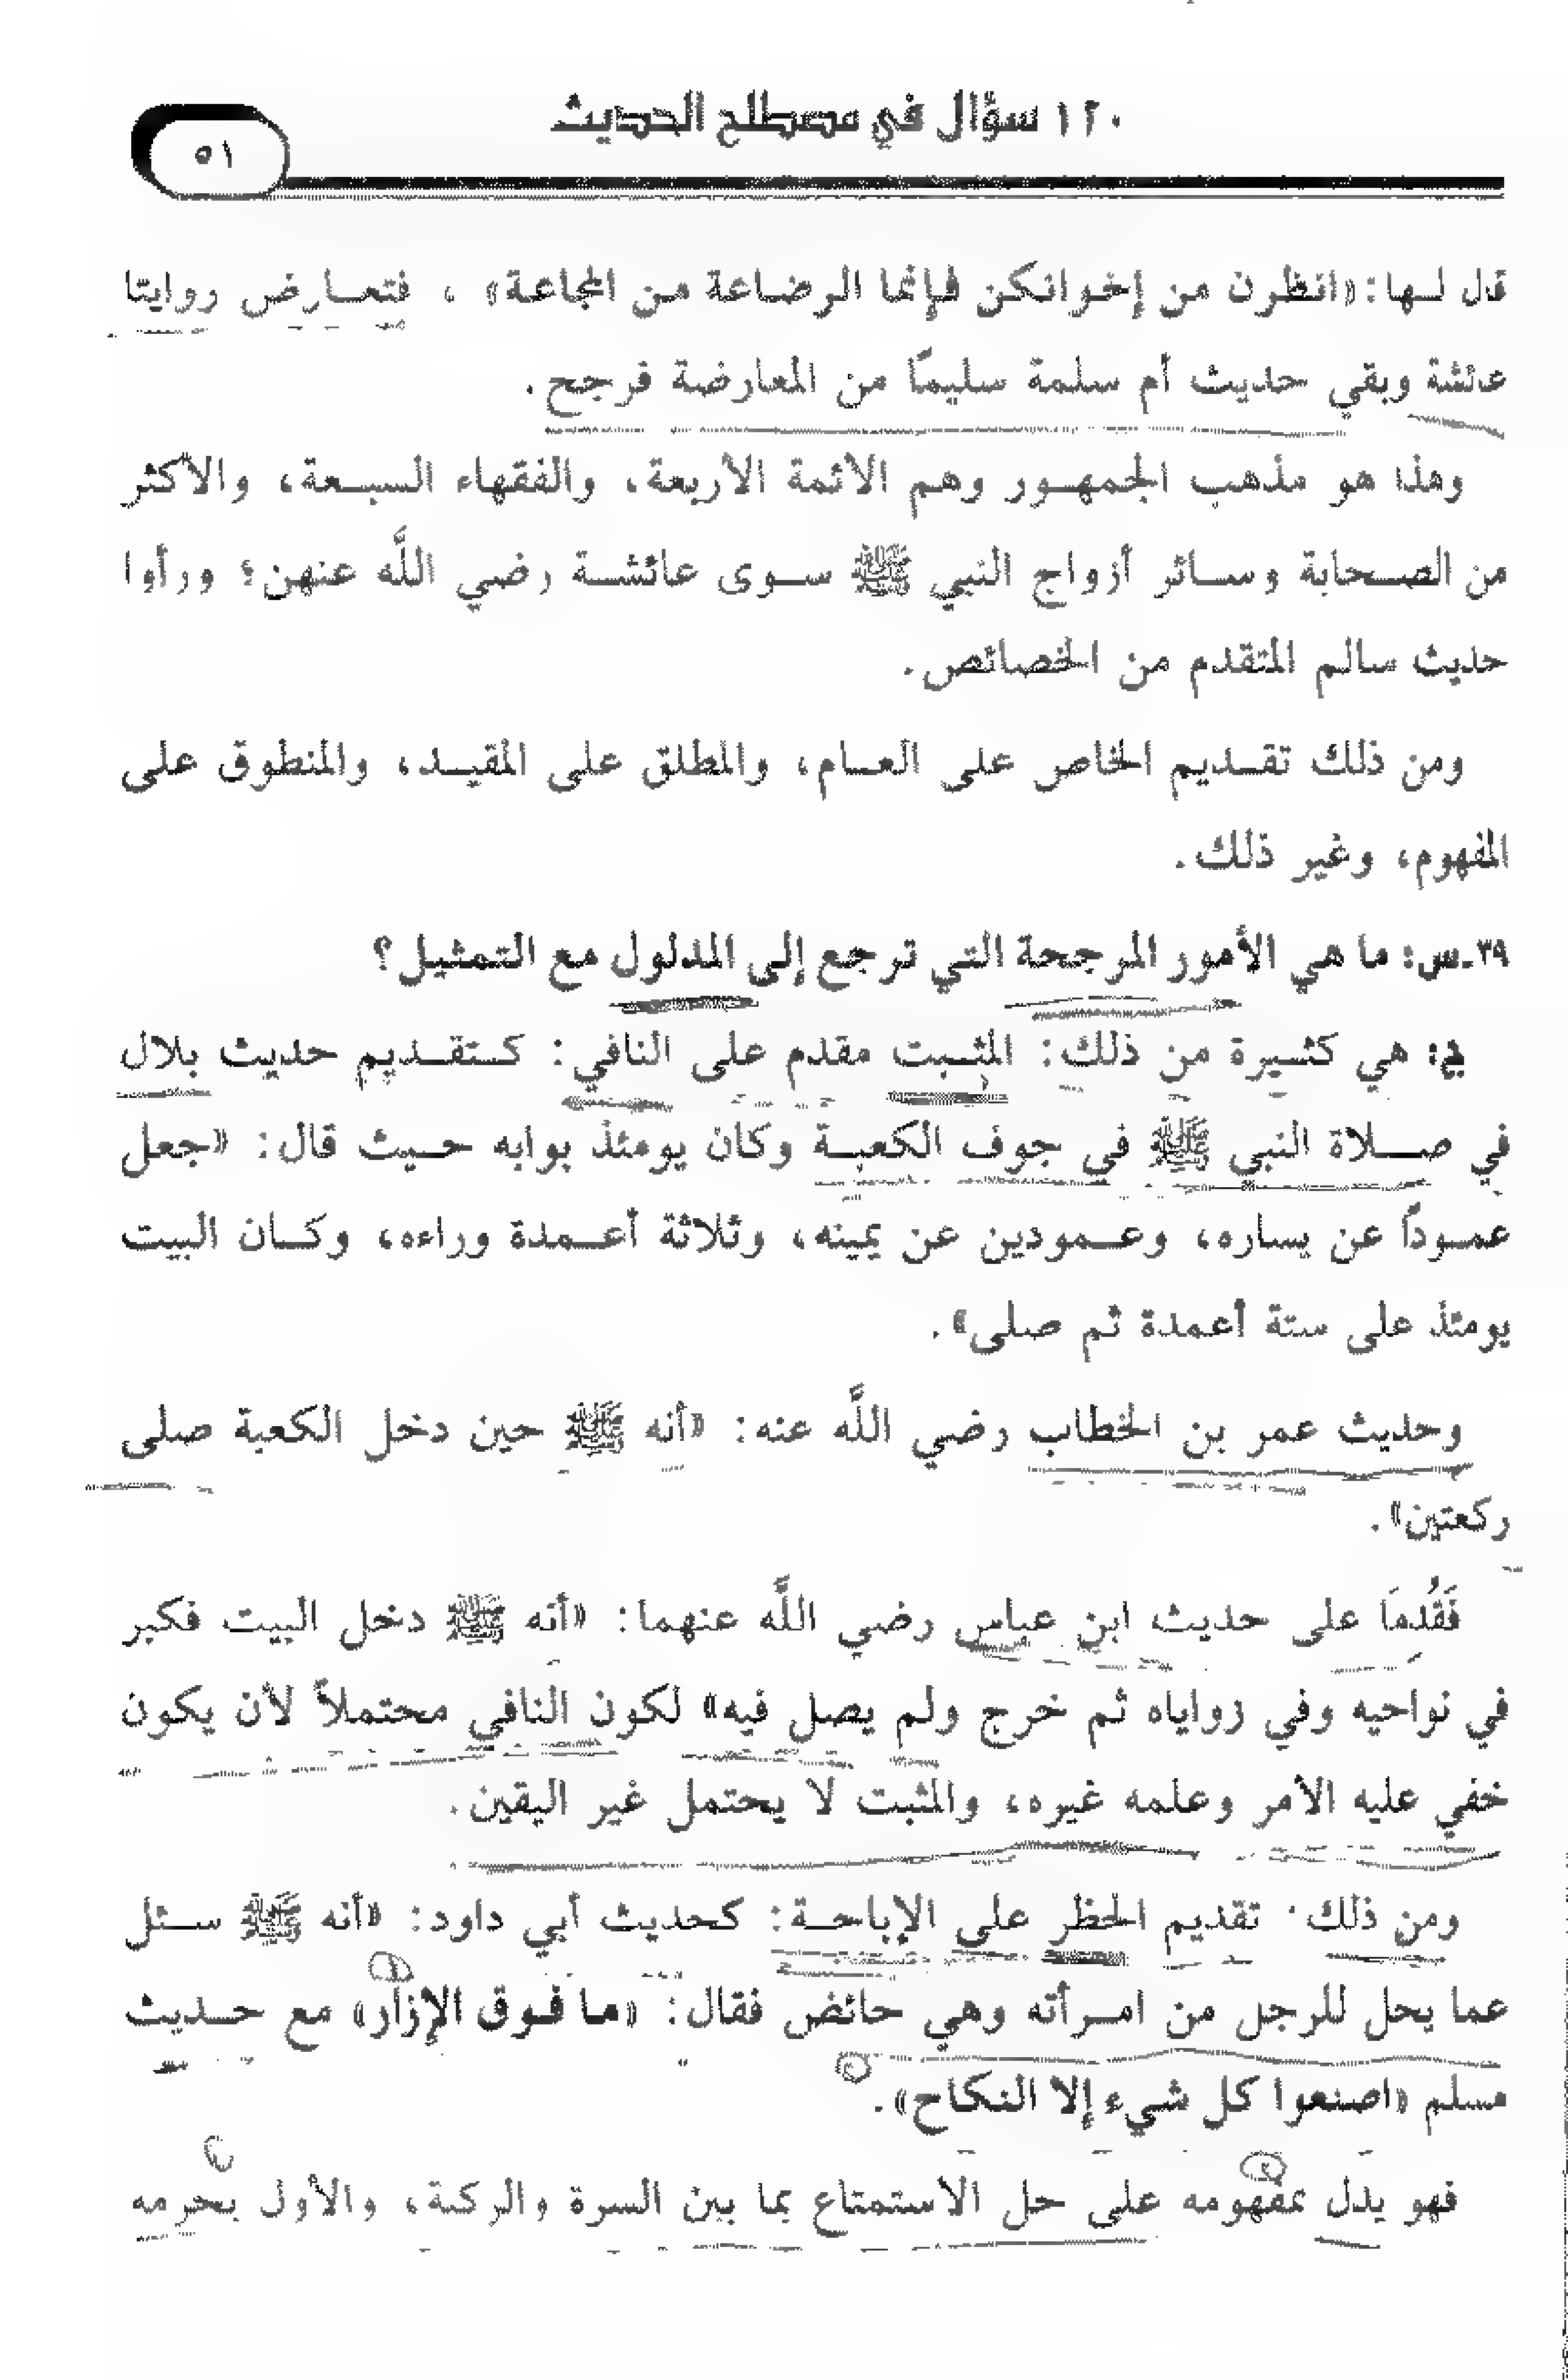 ١٢٠ سؤال في مصطلح الحديث
٥١
قال لها: «انظرن من إخوانكن فإنما الرضاعة من المجاعة» ، فتعارض روايتا
عائشة وبقي حديث أم سلمة سليمًا من المعارضة فرجح.
وهذا هو مذهب الجمهور وهم الأئمة الأربعة، والفقهاء السبعة، والأكثر
من الصحابة وسائر أزواج النبي ﷺ سوى عائشة رضي اللَّه عنهن؛ ورأوا
حديث سالم المتقدم من الخصائص.
ومن ذلك تقديم الخاص على العام، والمطلق على المقيد، والمنطوق على
المفهوم، وغير ذلك.
٣٩ـ س: ما هي الأمور المرجحة التي ترجع إلى المدلول مع التمثيل؟
ج: هي كثيرة من ذلك: المثبت مقدم على النافي: كتقديم حديث بلال
في صلاة النبي ﷺ في جوف الكعبة وكان يومئذ بوابه حيث قال: «جعل
عمودًا عن يساره، وعمودين عن يمينه، وثلاثة أعمدة وراءه، وكان البيت
يومئذ على ستة أعمدة ثم صلى».
وحديث عمر بن الخطاب رضي اللَّه عنه: «أنه ﷺ حين دخل الكعبة صلى
ركعتين».
فَقُدمَا على حديث ابن عباس رضي اللَّه عنهما: «أنه ﷺ دخل البيت فكبر
في نواحيه وفي زواياه ثم خرج ولم يصل فيه» لكون النافي محتملاً لأن يكون
خفي عليه الأمر وعلمه غيره، والمثبت لا يحتمل غير اليقين.
ومن ذلك تقديم الحظر على الإباحة: كحديث أبي داود: «أنه ﷺ سئل
عما يحل للرجل من امرأته وهي حائض فقال: «ما فوق الإزار» مع حديث
مسلم «اصنعوا كل شيء إلا النكاح».
فهو يدل بمفهومه على حل الاستمتاع بما بين السرة والركبة، والأول يحرمه